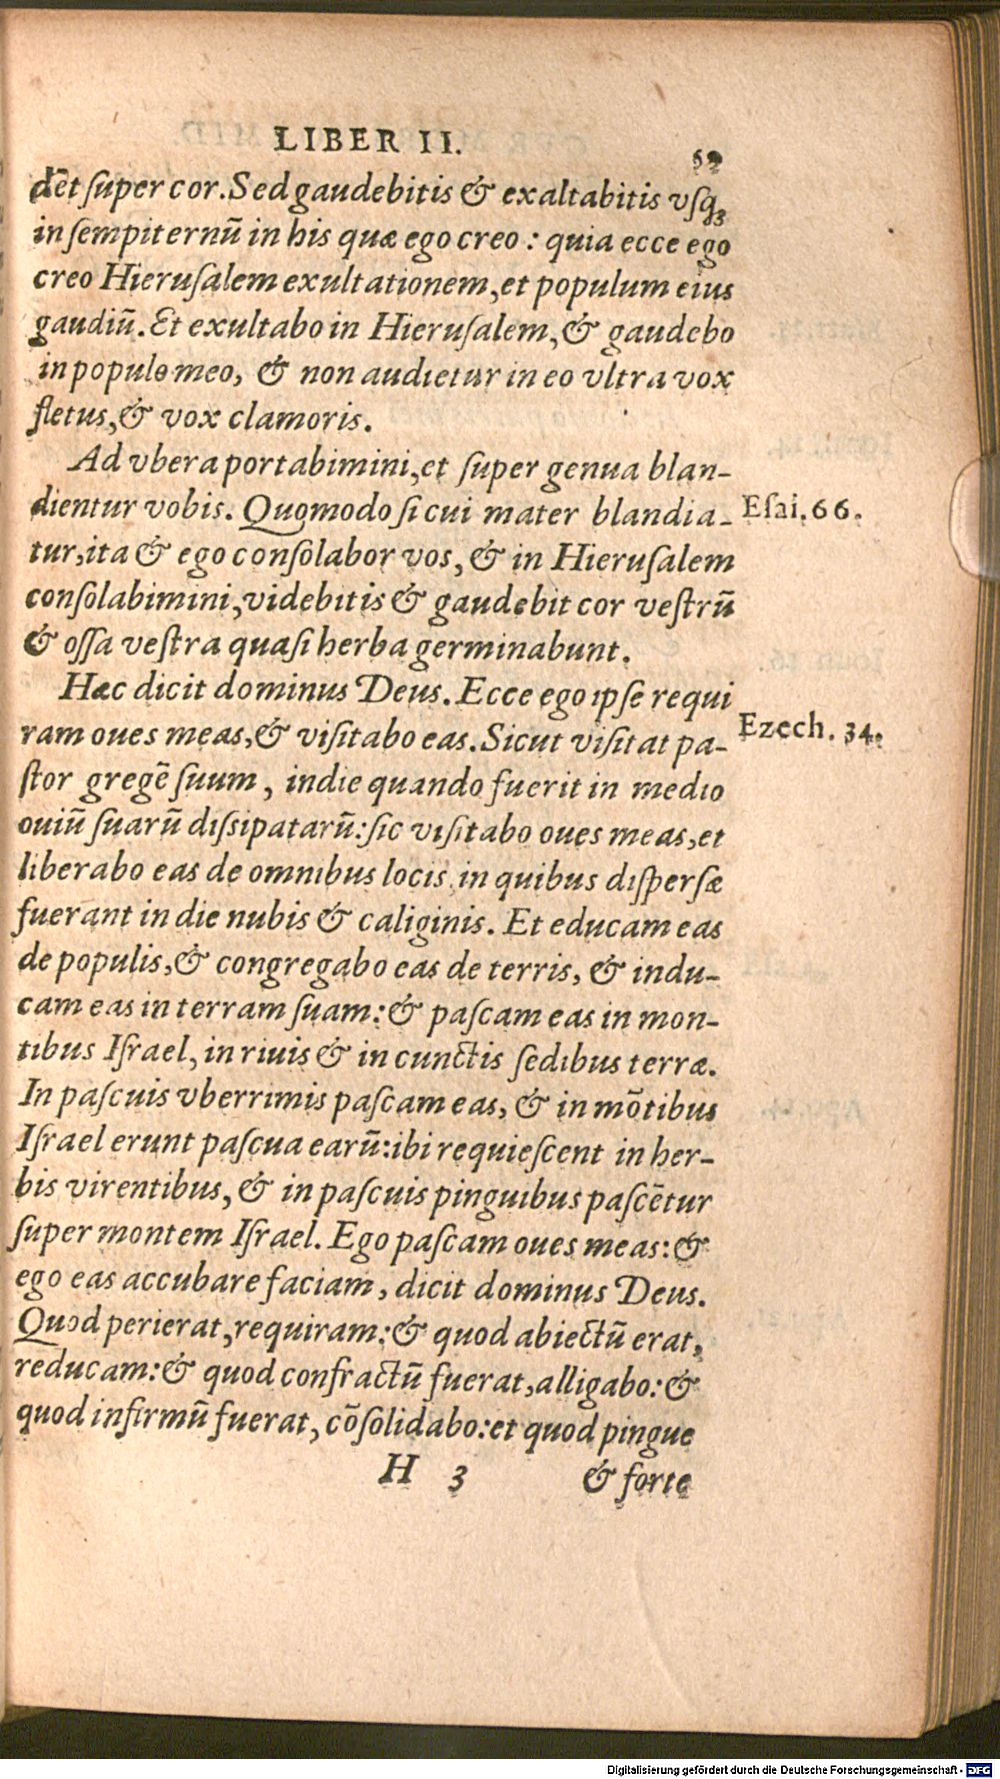 LIBER II.
dēt ſuper cor. Sed gaudebitis & exaltabitis vſq;
in ſempiternū in his quæ ego creo : quia ecce ego
creo Hieruſalem exultationem, et populum eius
gaudiū. Et exultabo in Hieruſalem, & gaudebo
in populo meo, & non audietur in eo vltra vox
fletus, & vox clamoris.
Ad vbera portabimini, et ſuper genua blan-
dientur vobis. Quomodo ſi cui mater blandia-
Eſai. 66.
tur, ita & ego conſolabor vos, & in Hieruſalem
conſolabimini, videbitis & gaudebit cor veſtrū
& oſſa veſtra quaſi herba germinabunt.
Hæc dicit dominus Deus. Ecce ego ipſe requi
Ezech. 34.
ram oues meas, & viſitabo eas. Sicut viſitat pa-
ſtor gregē ſuum , in die quando fuerit in medio
ouiū ſuarū diſsipatarū: ſic viſitabo oues meas, et
liberabo eas de omnibus locis, in quibus diſperſæ
fuerant in die nubis & caliginis. Et educam eas
de populis, & congregabo eas de terris, & indu-
cam eas in terram ſuam: & paſcam eas in mon-
tibus Iſrael, in riuis & in cunctis ſedibus terræ.
In paſcuis vberrimis paſcam eas, & in mōtibus
Iſrael erunt paſcua earū: ibi requieſcent in her-
bis virentibus, & in paſcuis pinguibus paſcētur
ſuper montem Iſrael. Ego paſcam oues meas: &
ego eas accubare faciam, dicit dominus Deus.
Quod perierat, requiram: & quod abiectū erat,
reducam: & quod confractū fuerat, alligabo: &
quod infirmū fuerat, cōſolidabo: et quod pingue
H 3 & forte
Digitalisierung gefördert durch die Deutsche Forschungsgemeinschaft - DFG